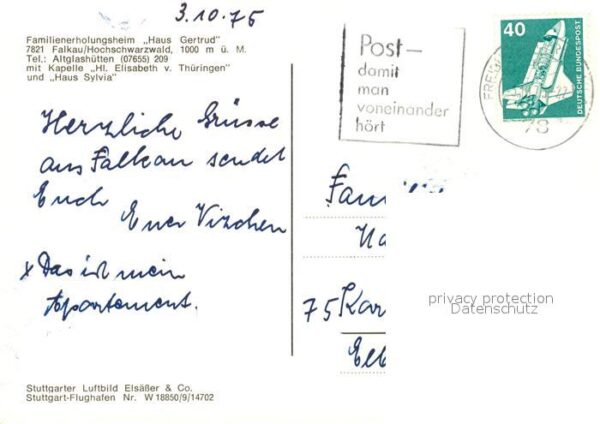 3.10.75
Familienerholungsheim „Haus Gertrud"
7821 Falkau/Hochschwarzwald, 1000 m ü. M.
Tel.: Altglashütten (07655) 209
mit Kapelle „Hl. Elisabeth v. Thüringen"
und „Haus Sylvia"
Post–
damit
man
voneinander
hört
40
DEUTSCHE BUNDESPOST
78
Herzliche Grüsse
aus Falkau sendet
Euch
Euer Vizchen
x Das ist mein
Apartement.
Fam
75 Kar
privacy protection
Datenschutz
Stuttgarter Luftbild Elsäßer & Co.
Stuttgart-Flughafen Nr. W 18850/9/14702